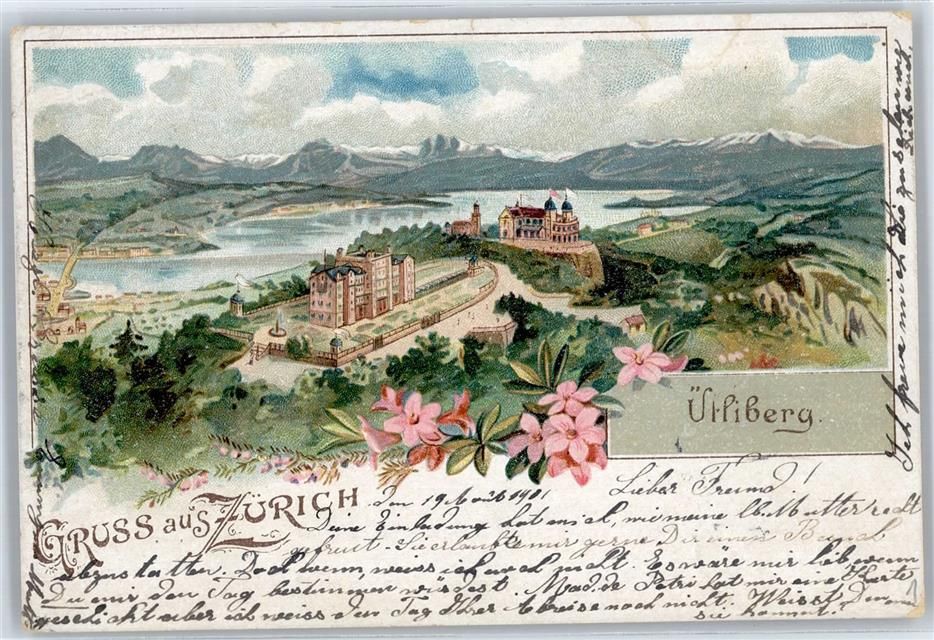 Ütliberg.
GRUSS aus ZÜRICH
den 19 Août 1901 Lieber Freund!
Deine Einladung hat mich, wie meine lb. Mutter recht
gefreut. Sie erlaubte mir gerne Dir einen Besuch
abzustatten. Doch wenn, weiss ich noch nicht. Es wäre mir lieb wenn
Du mir den Tag bestimmen würdest. Mad. de Petri hat mir eine Karte
geschickt aber ich weiss den Tag Ihrer Abreise noch nicht. Weisst Du wenn
sie kommt?
Ich freue mich Dich zu sehen